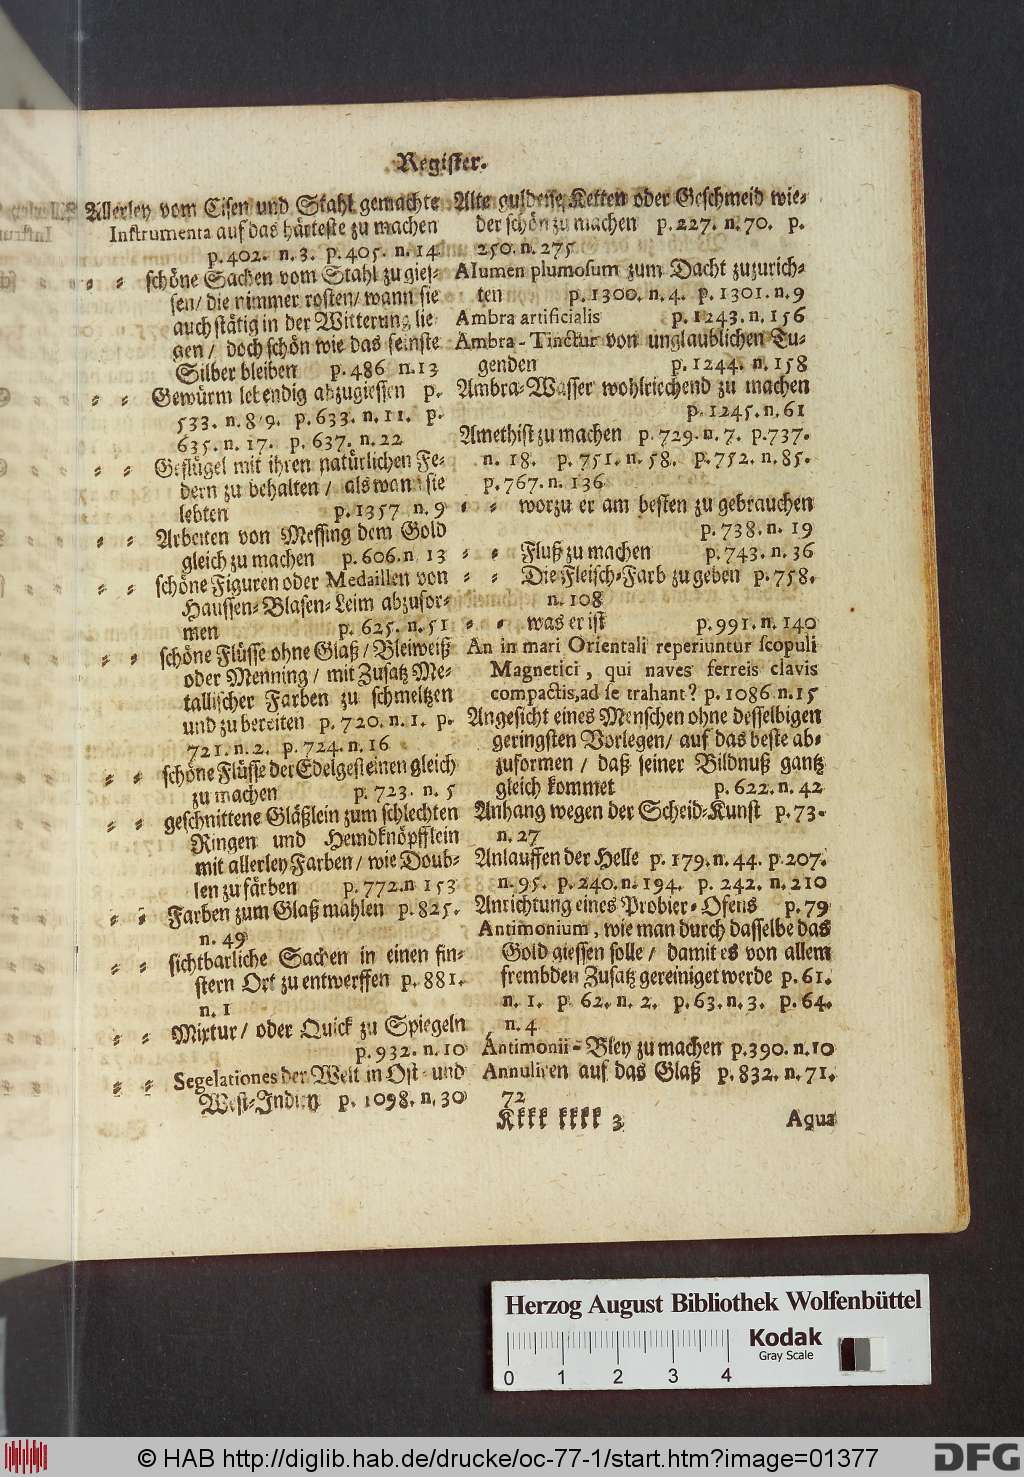 Register.
Allerley vom Eisen und Stahl gemachte
Instrumenta auf das härteste zu machen
p. 402. n. 3. p. 405. n. 14
⸗ ⸗ schöne Sachen vom Stahl zu gies-
sen/ die nimmer rosten/ wann sie
auch stätig in der Witterung lie
gen/ doch schön wie das feinste
Silber bleiben p. 486 n. 13
⸗ ⸗ Gewürm lebendig abzugiessen p.
533. n. 8/9. p. 633. n. 11. p.
635. n. 17. p. 637. n. 22
⸗ ⸗ Geflügel mit ihren natürlichen Fe-
dern zu behalten/ als wann sie
lebten p. 1357 n. 9
⸗ ⸗ Arbeiten von Messing dem Gold
gleich zu machen p. 606. n 13
⸗ ⸗ schöne Figuren oder Medaillen von
Haussen-Blasen-Leim abzufor-
men p. 625. n. 51
⸗ ⸗ schöne Flüsse ohne Glaß/ Bleiweiß
oder Menning/ mit Zusatz Me-
tallischer Farben zu schmeltzen
und zu bereiten p. 720. n. 1. p.
721. n. 2. p. 724. n. 16
⸗ ⸗ schöne Flüsse der Edelgesteinen gleich
zu machen p. 723. n. 5
⸗ ⸗ geschnittene Gläßlein zum schlechten
Ringen und Hemdknöpfflein
mit allerley Farben/ wie Doub-
len zu färben p. 772. n 153
⸗ ⸗ Farben zum Glaß mahlen p. 825.
n. 49
⸗ ⸗ sichtbarliche Sachen in einen fin-
stern Ort zu entwerffen p. 881.
n. 1
⸗ ⸗ Mixtur/ oder Quick zu Spiegeln
p. 932. n. 10
⸗ ⸗ Segelationes der Welt in Ost- und
West-Indien p. 1098. n. 30
Alte guldene Ketten oder Geschmeid wie-
der schön zu machen p. 227. n. 70. p.
250. n. 275
Alumen plumosum zum Dacht zuzurich-
ten p. 1300. n. 4. p. 1301. n. 9
Ambra artificialis p. 1243. n. 156
Ambra-Tinctur von unglaublichen Tu-
genden p. 1244. n. 158
Ambra-Wasser wohlriechend zu machen
p. 1245. n. 61
Amethist zu machen p. 729. n. 7. p. 737.
n. 18. p. 751. n. 58. p. 752. n. 85.
p. 767. n. 136
⸗ ⸗ worzu er am besten zu gebrauchen
p. 738. n. 19
⸗ ⸗ Fluß zu machen p. 743. n. 36
⸗ ⸗ Die Fleisch-Farb zu geben p. 758.
n. 108
⸗ ⸗ was er ist p. 991. n. 140
An in mari Orientali reperiuntur scopuli
Magnetici, qui naves ferreis clavis
compactis, ad se trahant? p. 1086 n. 15
Angesicht eines Menschen ohne desselbigen
geringsten Vorlegen/ auf das beste ab-
zuformen/ daß seiner Bildnuß gantz
gleich kommet p. 622. n. 42
Anhang wegen der Scheid-Kunst p. 73.
n. 27
Anlauffen der Helle p. 179. n. 44. p 207.
n. 95. p. 240. n. 194. p. 242. n. 210
Anrichtung eines Probier-Ofens p. 79
Antimonium, wie man durch dasselbe das
Gold giessen solle/ damit es von allem
frembden Zusatz gereiniget werde p. 61.
n. 1. p. 62. n. 2. p. 63. n. 3. p. 64.
n. 4
Antimonii-Bley zu machen p. 390. n. 10
Annuliren auf das Glaß p. 832. n. 71.
72
Kkkk kkkk 3
Aqua
Herzog August Bibliothek Wolfenbüttel
Kodak
Gray Scale
0 1 2 3 4
© HAB http://diglib.hab.de/drucke/oc-77-1/start.htm?image=01377
DFG